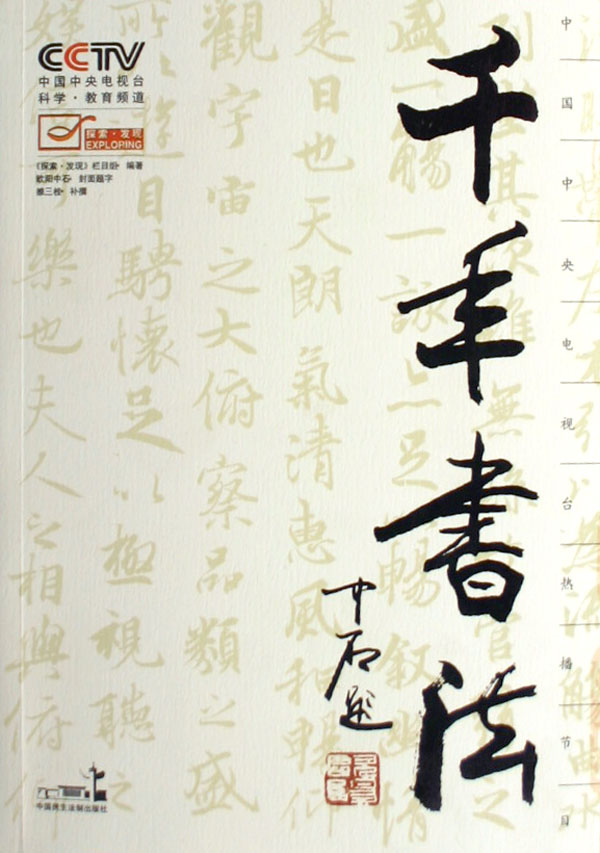 CCTV
中国中央电视台
科学·教育频道
探索·发现
EXPLORING
《探索·发现》栏目组·编著
欧阳中石·封面题字
三 · 补撰
千年书法
中石题
中国中央电视台热播节目
中国民主法制出版社
是日也天朗氣清惠風和暢仰
觀宇宙之大俯察品類之盛
所以遊目騁懷足以極視聽之
樂也夫人之相與俯仰
盛一觴一詠亦足暢叙幽情